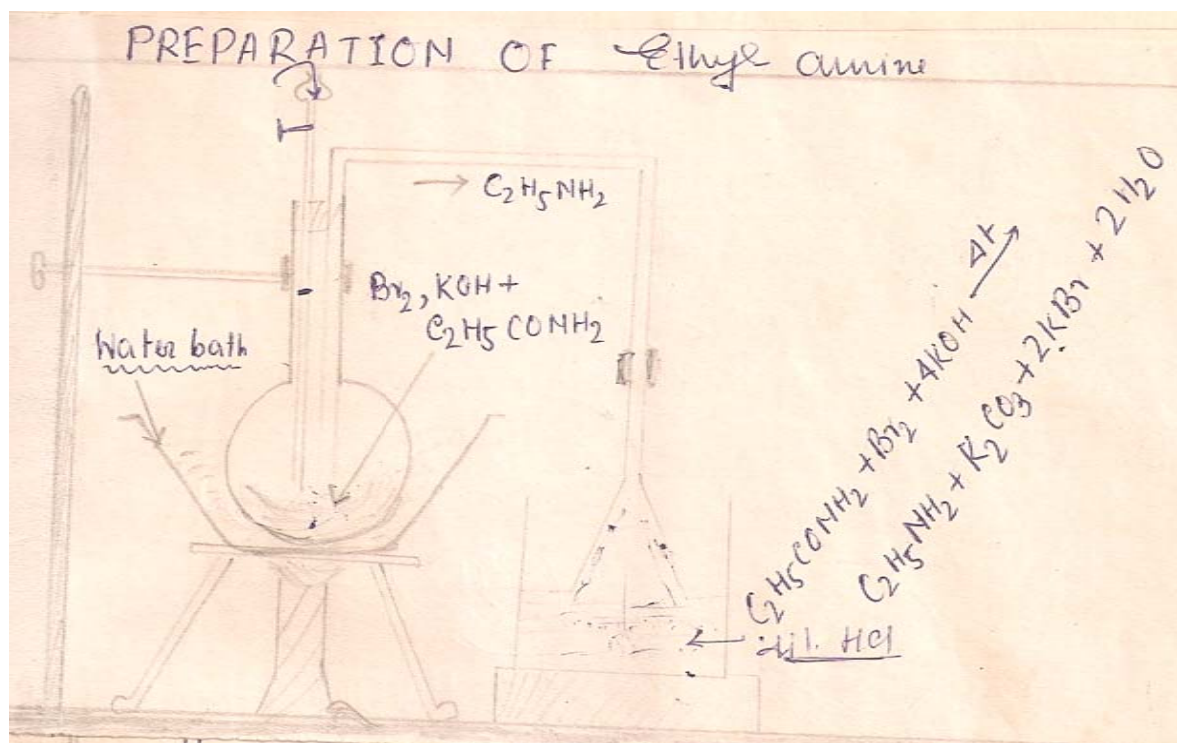 PREPARATION OF Ethyl amine
→ C2H5NH2
Br2, KOH +
C2H5CONH2
Water bath
C2H5CONH2 + Br2 + 4KOH Δr→
C2H5NH2 + K2CO3 + 2KBr + 2H2O
dil. HCl